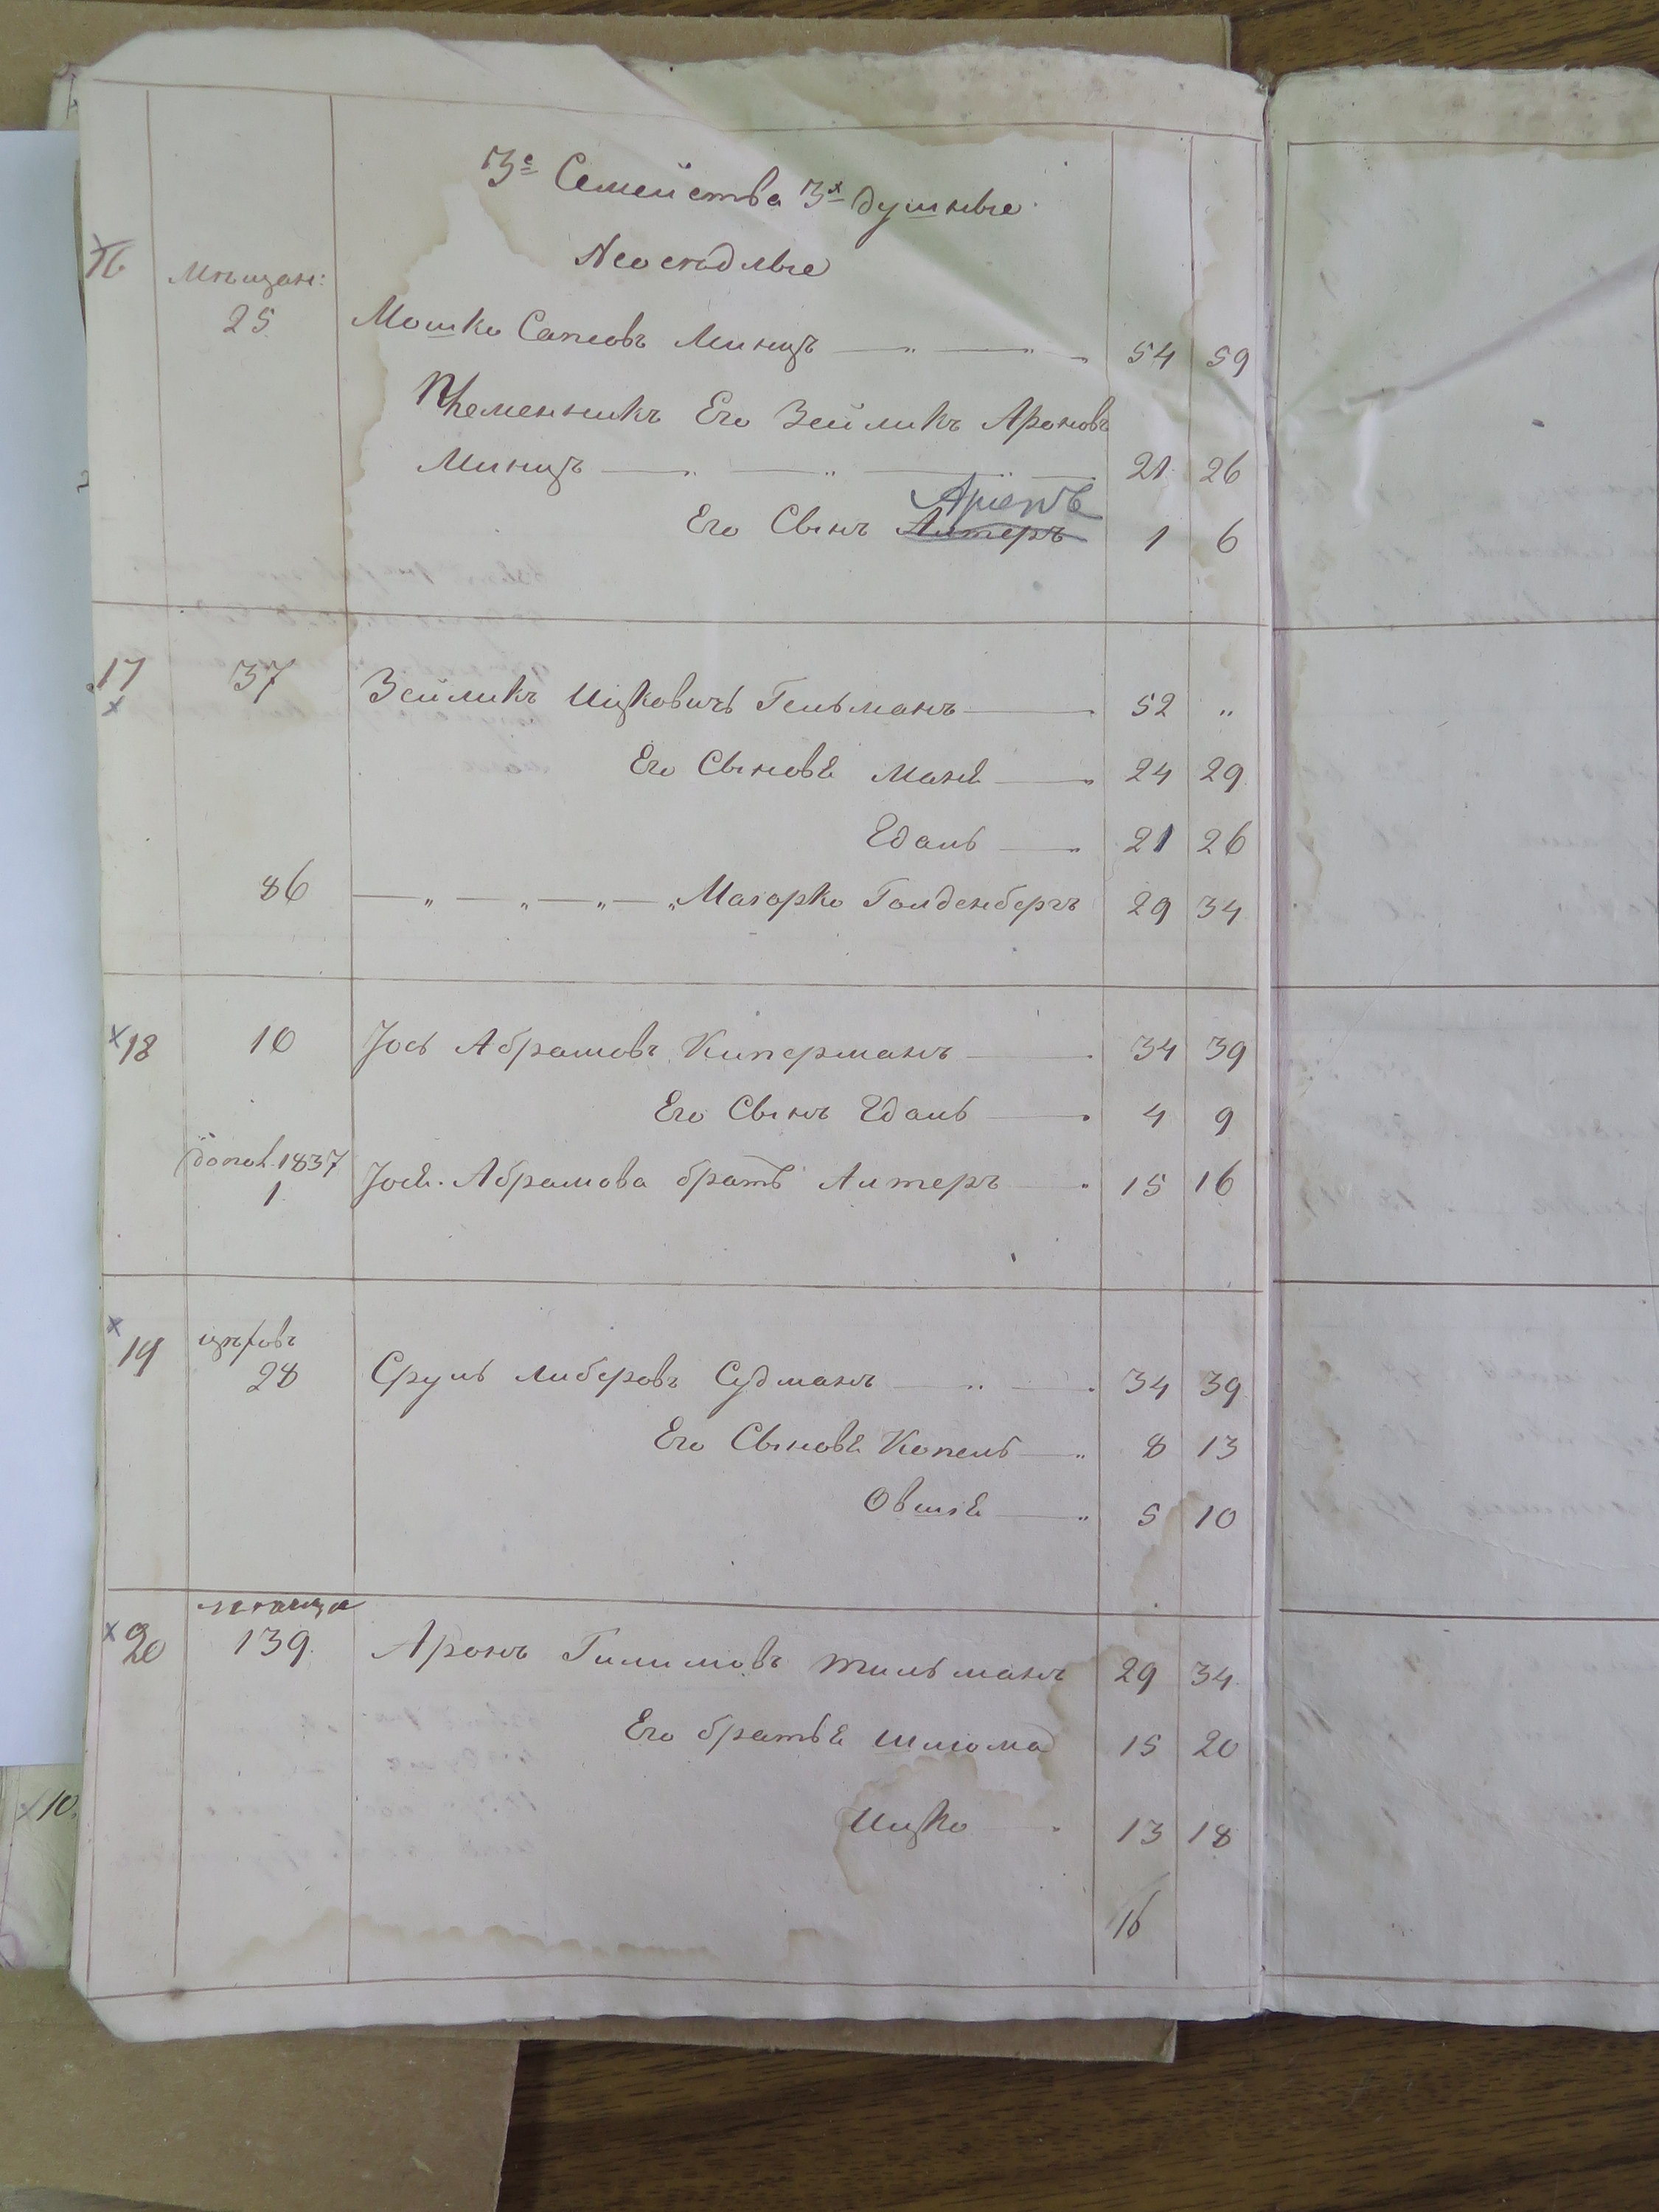 3е Семейства 3х душные
Неосѣдлые
16 Мѣщан:
25 Мошко Сапсовъ Минцъ — „ — „ 54 59
Племенникъ Его Зейликъ Ароновъ
Минцъ — „ — „ — 21 26
Аріетъ
Его Сынъ Алтеръ 1 6
17 37 Зейликъ Ицковичъ Гельманъ — 52 „
х
Его Сыновя Маня — 24 29
Удаль — 21 26
86 — „ — „ — „ — „ Маіорко Голденбергъ 29 34
х 18 10 Іось Абрамовъ Киперманъ — 34 39
Его Сынъ Удаль — 4 9
допол. 1837
1 Іося Абрамова братъ Алтеръ — 15 16
х
19 цѣховъ
28 Сруль Либеровъ Судманъ — „ — 34 39
Его Сыновя Копель — „ 8 13
Овшія — „ 5 10
мѣщан
х 20 139 Аронъ Гилиловъ тильманъ 29 34
Его братья Шлома 15 20
Ицко — 13 18
16
х 10.